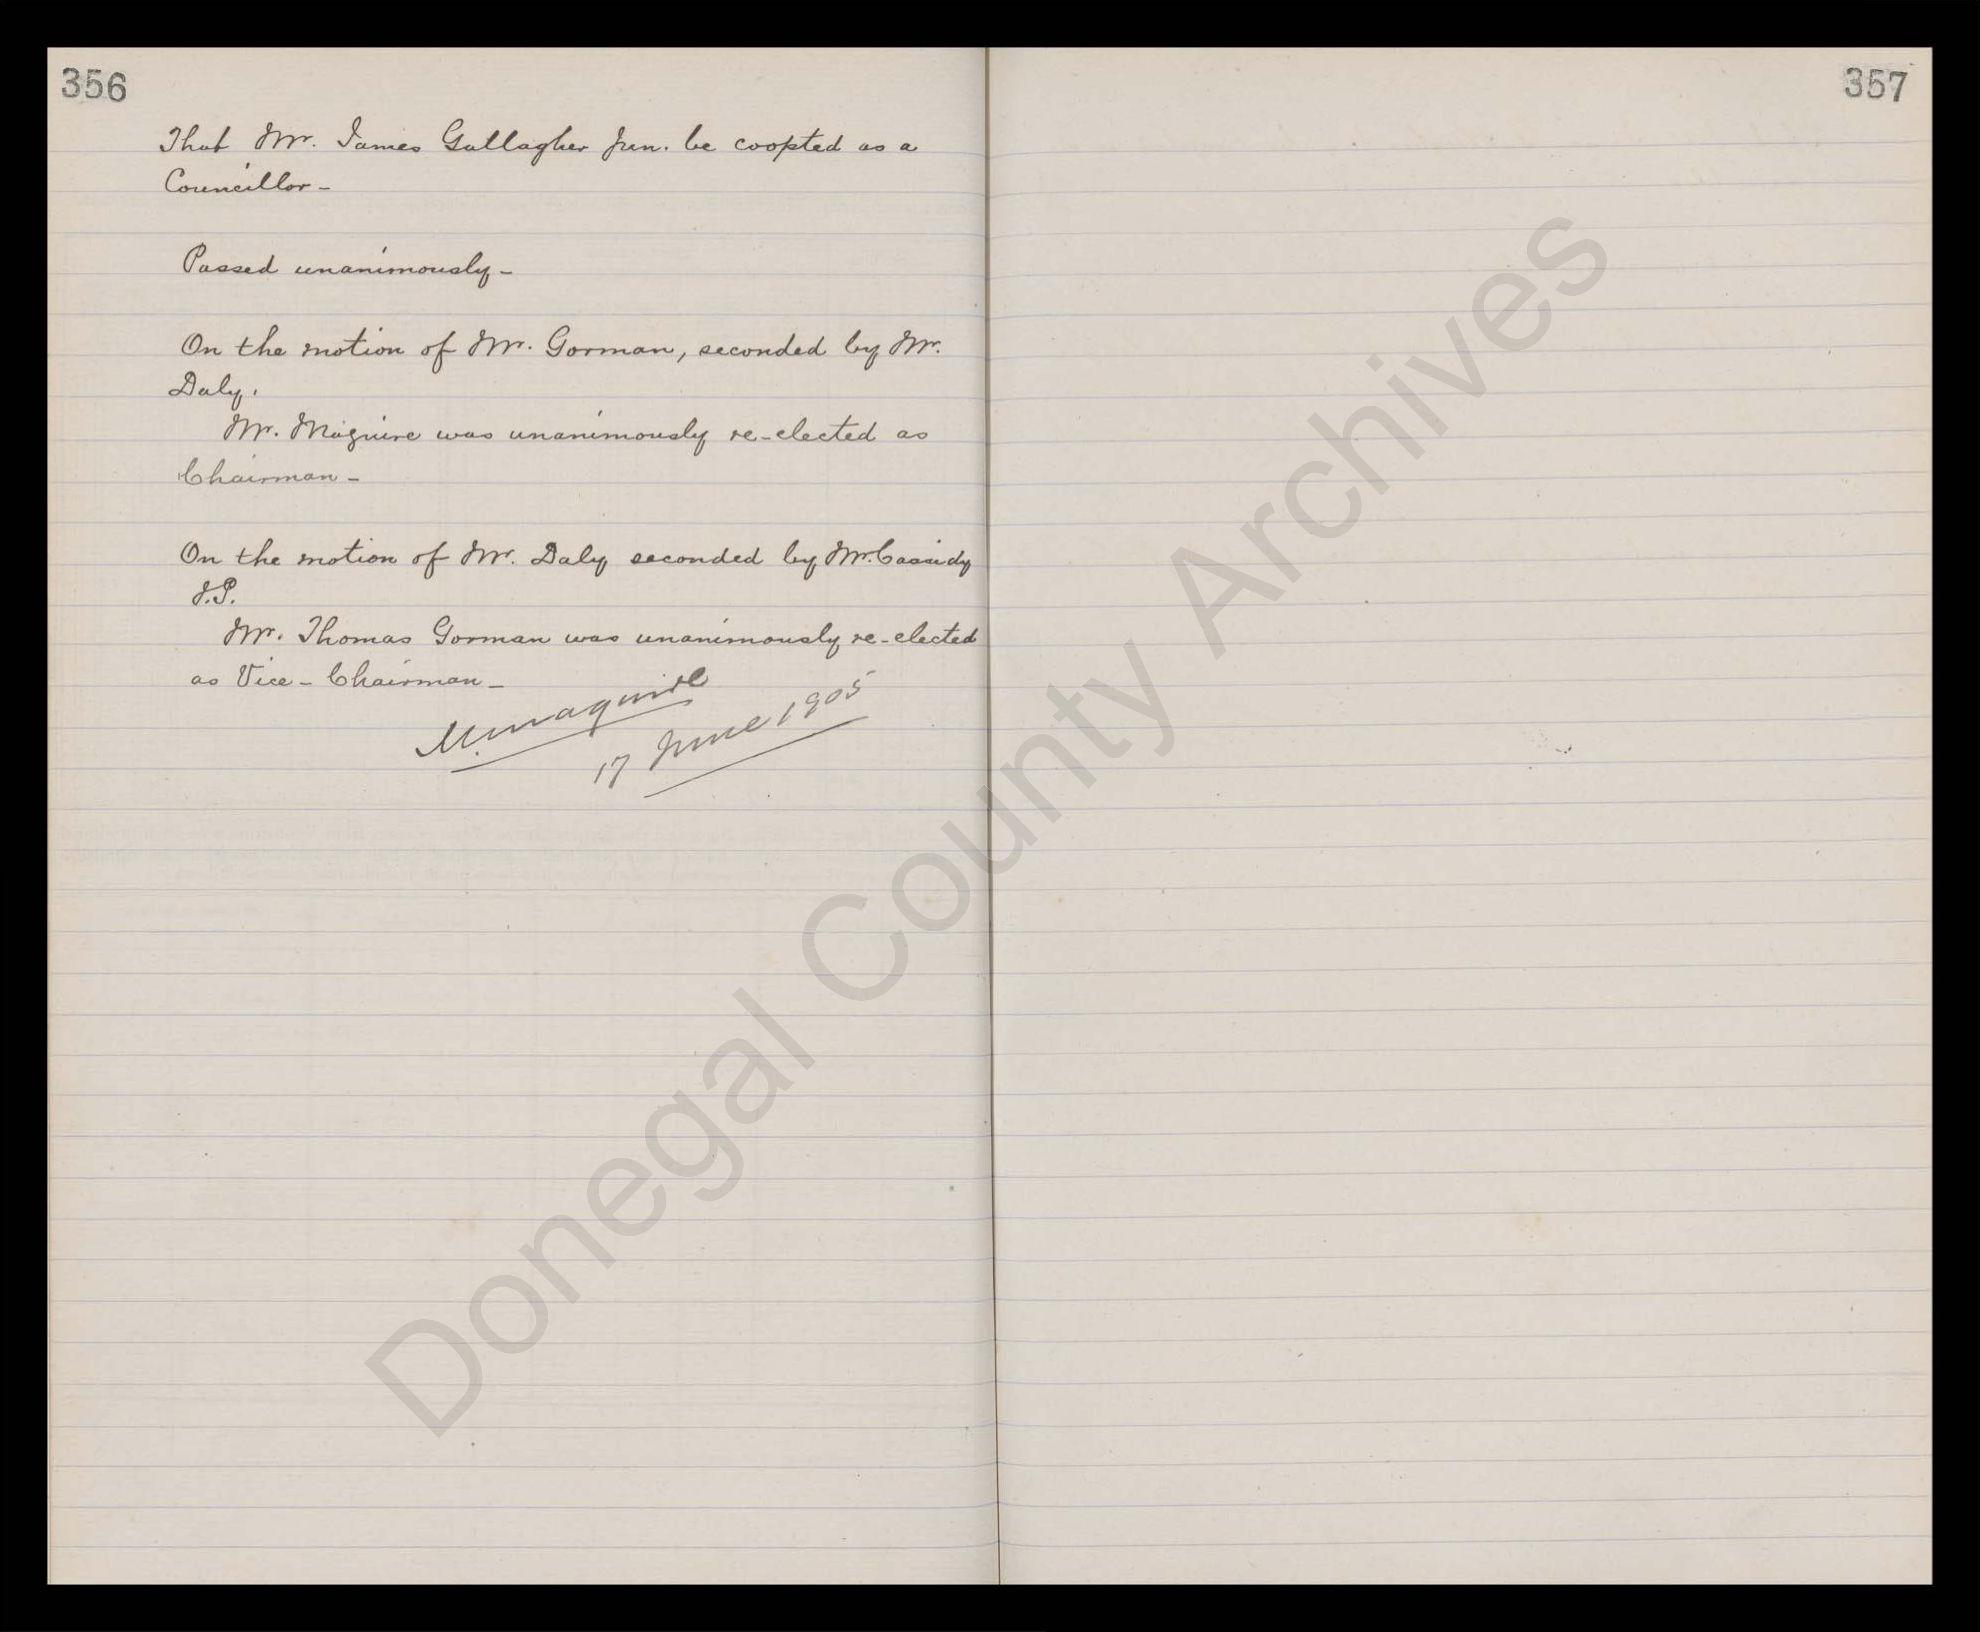 356
That Mr. James Gallagher Jun. be coopted as a
Councillor -
Passed unanimously -
On the motion of Mr. Gorman, seconded by Mr.
Daly.
Mr. Maguire was unanimously re-elected as
Chairman -
On the motion of Mr. Daly seconded by Mr. Cassidy
J.P.
Mr. Thomas Gorman was unanimously re-elected
as Vice - Chairman -
M. Maguire
17 June 1905
357
Donegal County Archives